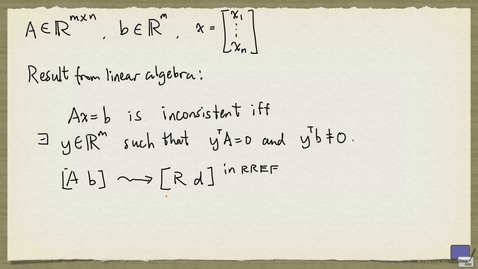 A ∈ ℝ^{m×n}, b ∈ ℝ^m, x = [x_1 ⋮ x_n]
Result from linear algebra:
Ax = b is inconsistent iff
∃ y ∈ ℝ^m such that y^T A = 0 and y^T b ≠ 0.
[A b] ⤳ [R d] in RREF